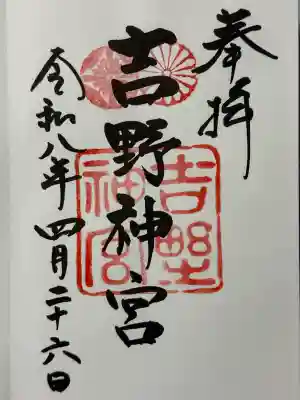 奉拝
吉野神宮
吉野
神宮
令和八年四月二十六日